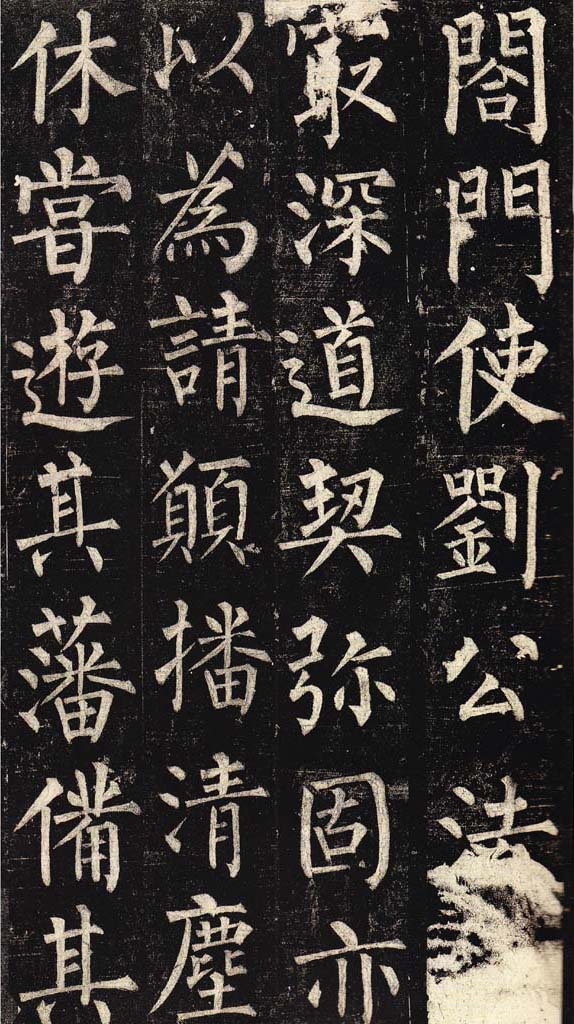 閤門使劉公法
最深道契弥固亦
以為請願播清塵
休嘗遊其藩備其